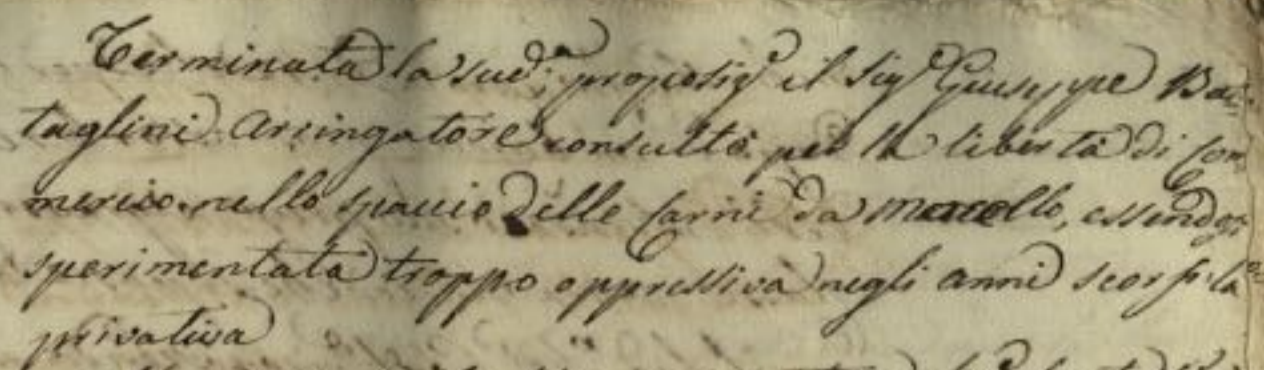 Terminata la sud.a proposiz.e il Sig.r Giuseppe Bat=
taglini Arringatore consultò per la libertà di Com
mercio nello spaccio delle Carni da Macello, essendosi
sperimentata troppo oppressiva negli anni scorsi la
privativa